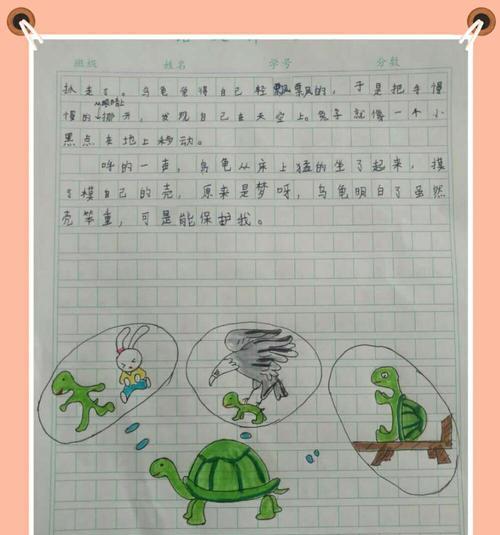 班级 姓名 学号 分数
抓走了。乌龟觉得自己轻飘飘的，于是把手慢
从眼睛上
慢的挪开，发现自己在天空上。兔子就像一个小
黑点在地上移动。
呼的一声，乌龟从床上猛的坐了起来，摸
了模自己的壳，原来是梦呀，乌龟明白了虽然
壳笨重，可是能保护我。